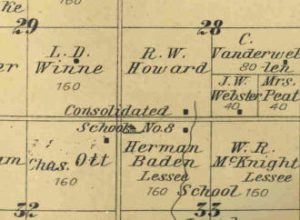 ke
29
28
L. D.
Winne
160
R. W.
Howard
160
C.
Vanderwel
80 leh
J. W.
Webster
40
Mrs.
Peat
40
er
Consolidated
School No. 8
Chas. Ott
160
am
Herman
Baden
Lessee
160
W. R.
McKnight
Lessee
160
School
32
33